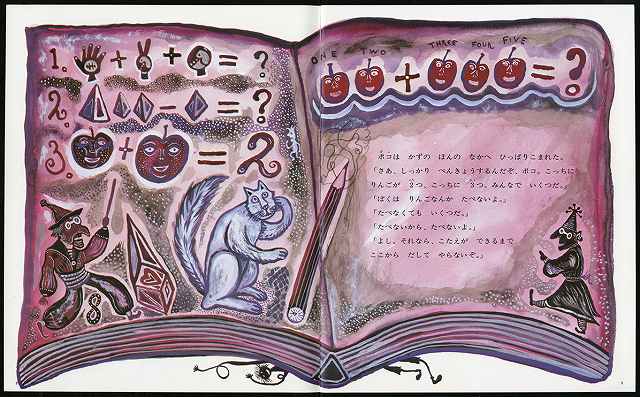 1. + + = ?
2. - = ?
3. + = 2
8
ONE TWO THREE FOUR FIVE
+ = ?
ポコは かずの ほんの なかへ ひっぱりこまれた。
「さあ、しっかり べんきょうするんだぞ、ポコ。こっちに
りんごが 2つ、こっちに 3つ、みんなで いくつだ。」
「ぼくは りんごなんか たべないよ。」
「たべなくても いくつだ。」
「たべないから、たべないよ。」
「よし、それなら、こたえが できるまで
ここから だして やらないぞ。」